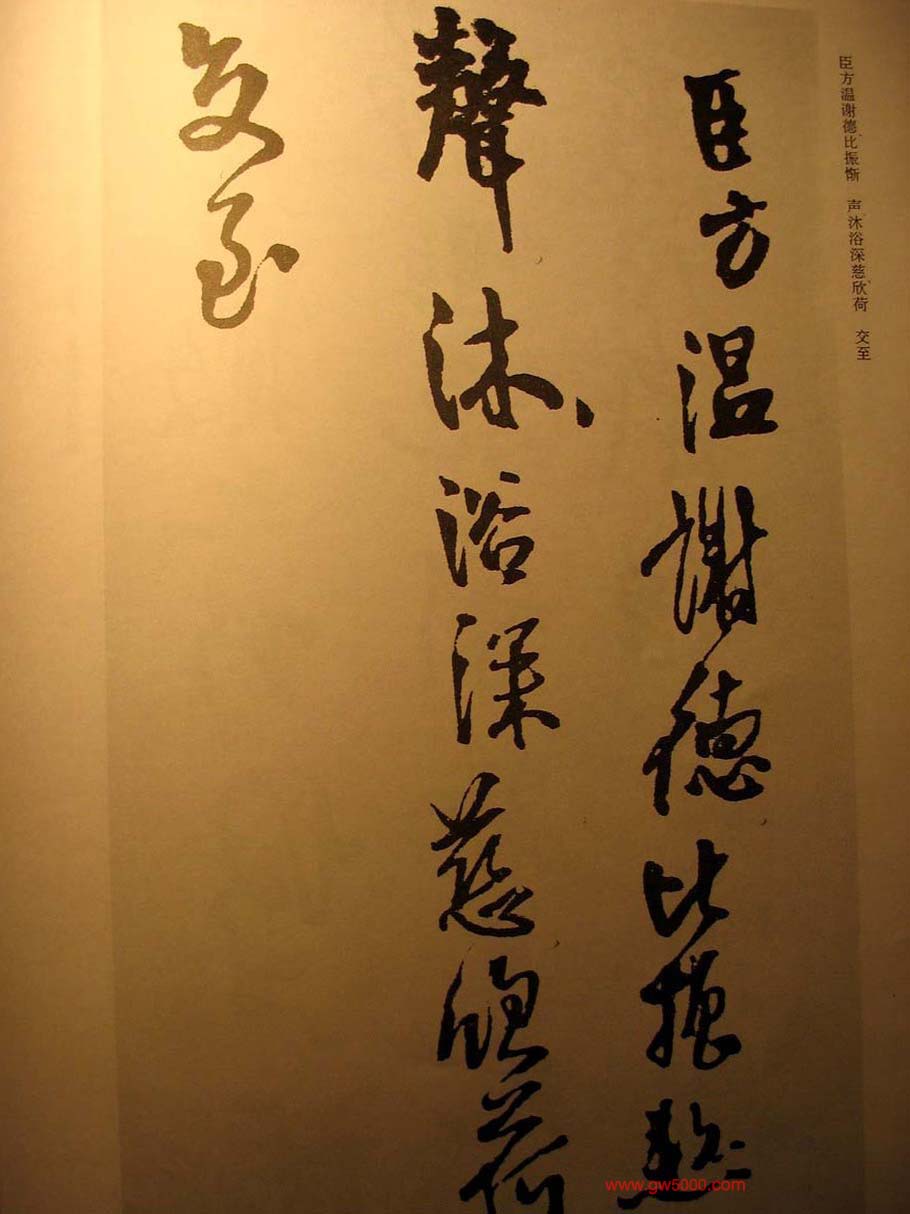 臣方温谢德比振惭 声沐浴深慈欣荷 交至
臣方温謝德比振
聲沐浴深慈荷
交至
www.gw5000.com